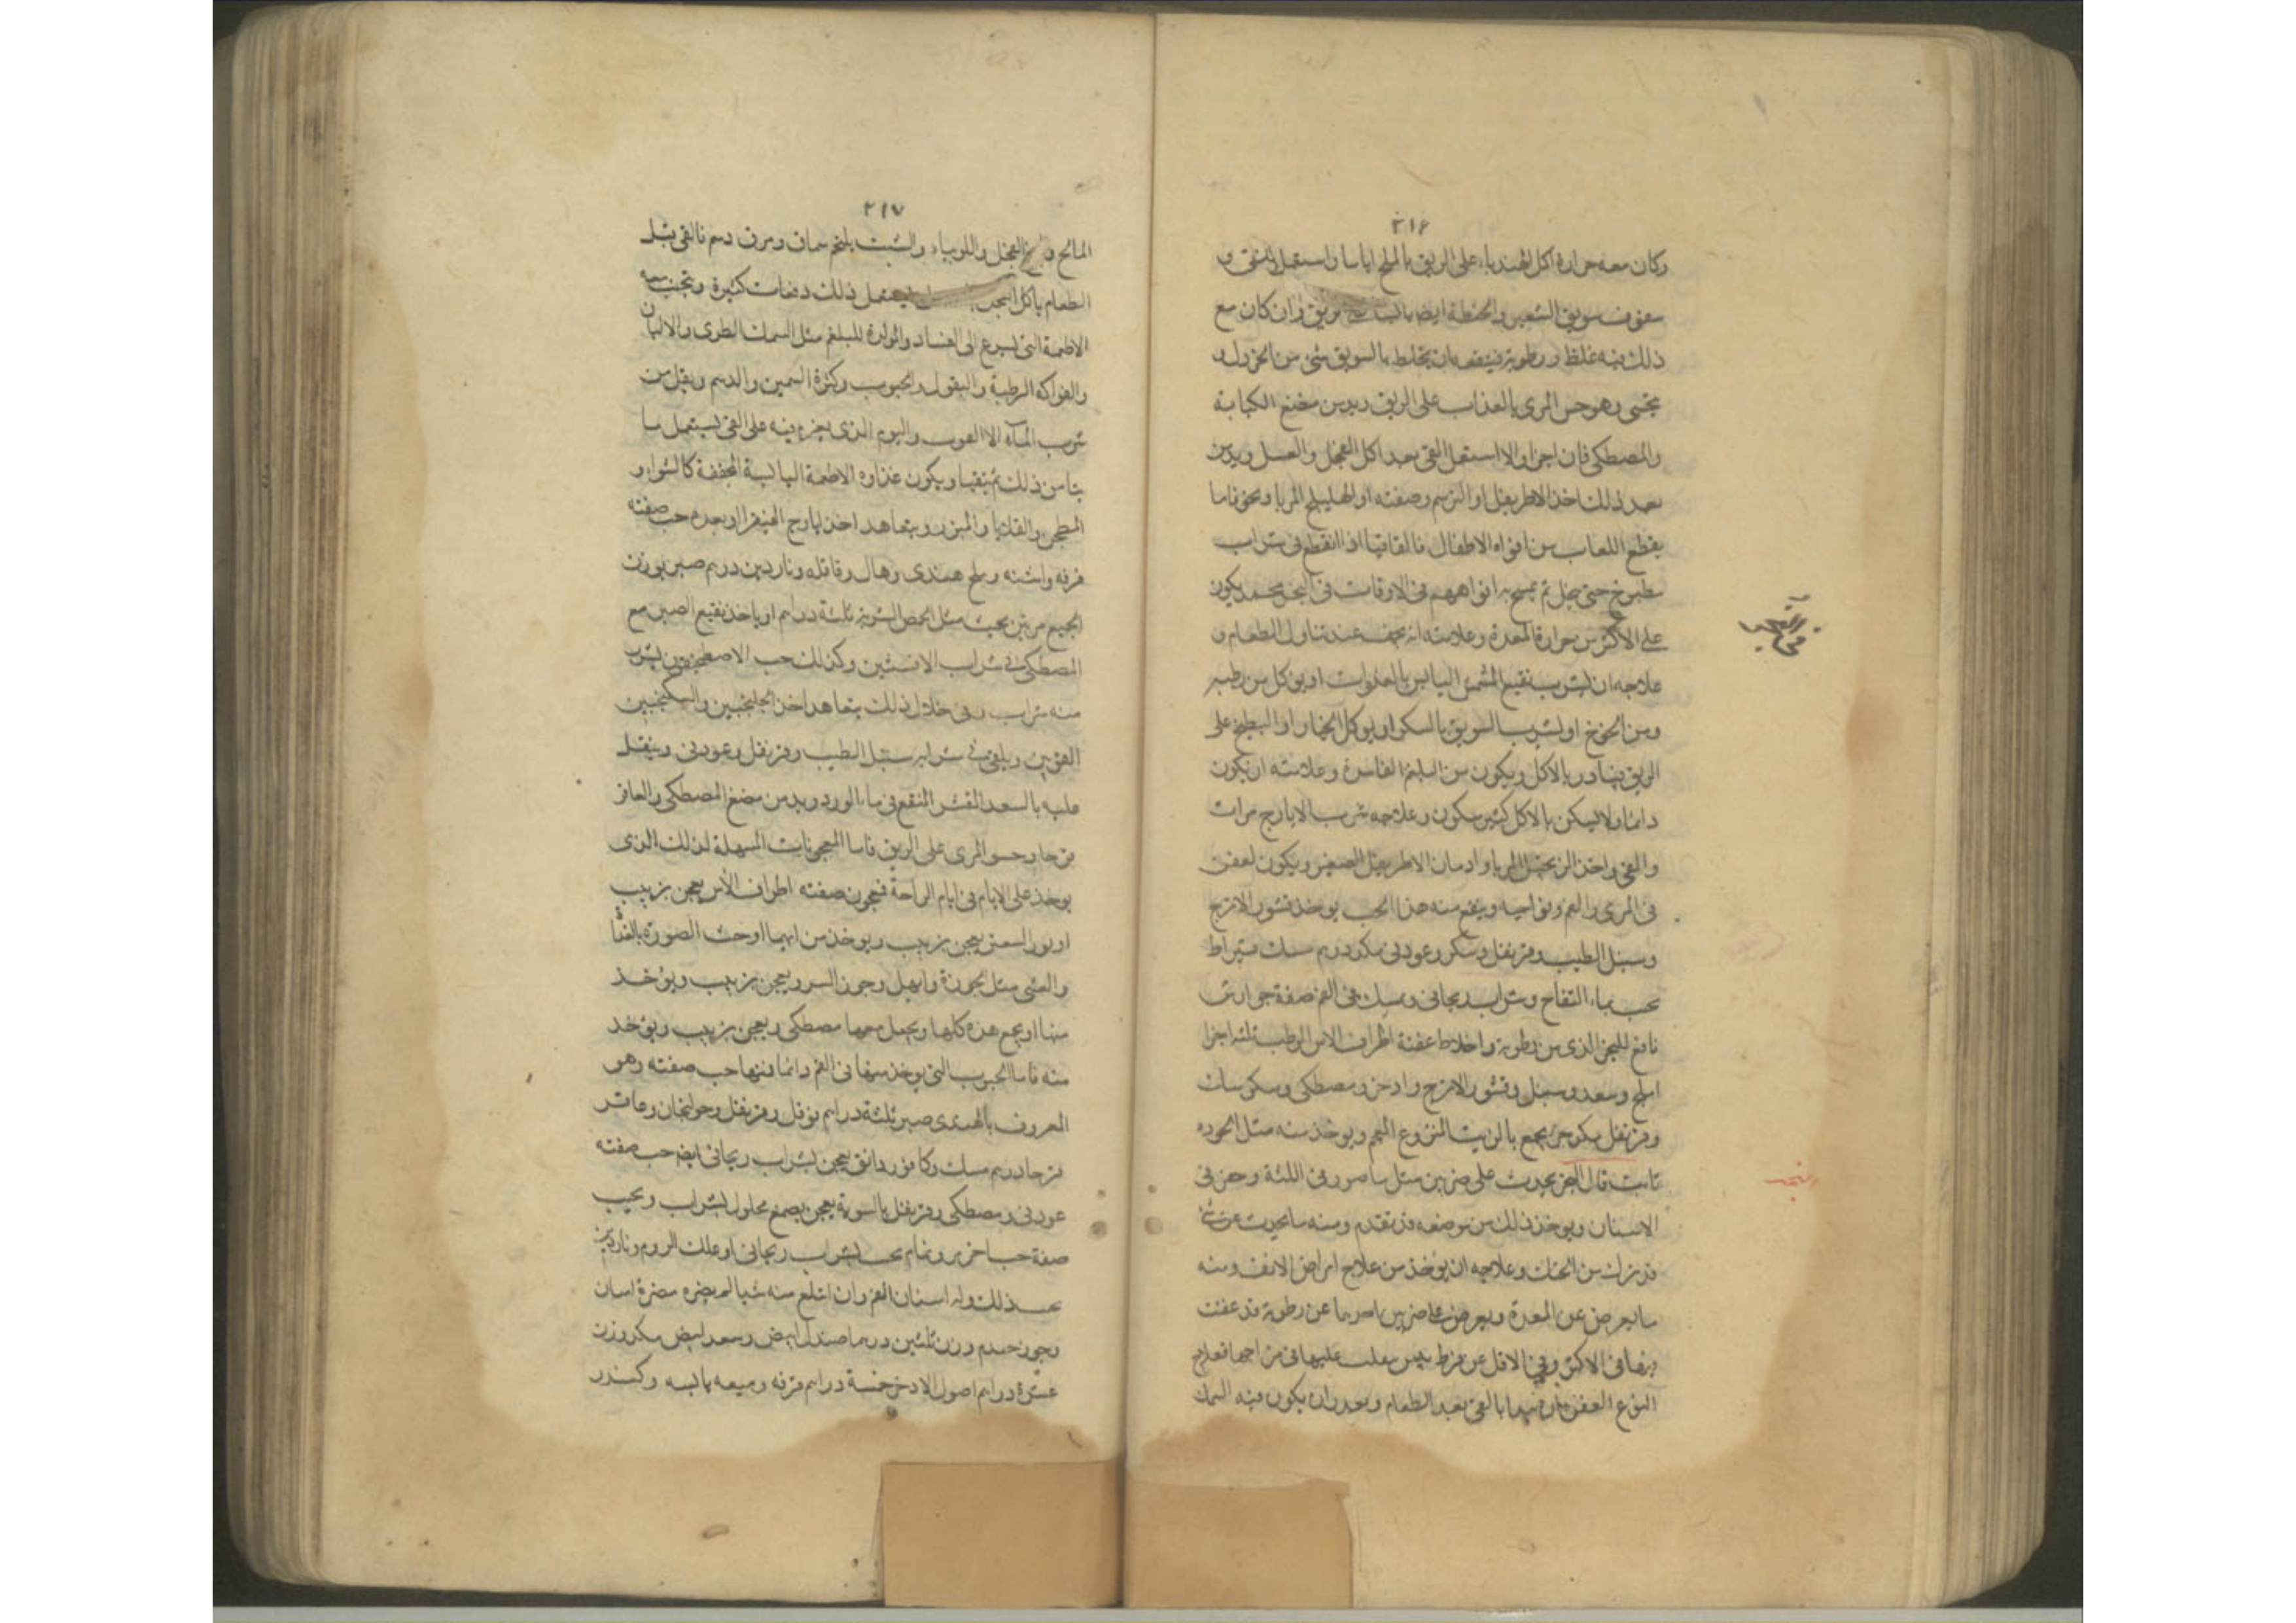 ٣١۶
وكان معه حرارة اكل الهندباء على الريق بالملح اياما واستعمل القئ و
سفوف سويق الشعير والحنطة ايضا بالماء على الريق وان كان مع
ذلك فيه غلظ ورطوبة فينفعه ان يخلط بالسويق شئ من الخردل و
يحتسى وهو حس المرى بالعذاب على الريق ويدمن مضغ الكبابة
والمصطكى فان اجزا والا استعمل القئ بعد اكل الفجل والعسل ويدمن
بعد ذلك اخذ الاطريفل او الترسم وصفته او الهليلج المربا ونحو فاما
يقطع اللعاب من افواه الاطفال فالقاقيا اذا انقع فى شراب
مطبوخ حتى ينحل ثم يمسح به افواههم فى الاوقات فى البخر محمد يكون
على الاكثر من حرارة المعدة وعلامته انه يخف عند تناول الطعام و
علاجه ان يشرب نقيع المشمش اليابس بالغدوات او يوكل من رطبه
ومن الخوخ او يشرب السويق بالسكر او يوكل الخيار او البطيخ على
الريق يبادر بالاكل ويكون من البلغم الفاسد وعلامته ان يكون
دائما ولا يسكن بالاكل كثير سكون وعلاجه شرب الايارج مرات
والقئ واخذ الزنجبيل المربا وادمان الاطريفل الصغير ويكون لعفن
فى المرى والفم ونواحيه وينفع منه هذا الحب يوخذ قشور الاترج
وسنبل الطيب وقرنفل وسكر وعود نى مكد درهم مسك قيراط
يحبب بماء التفاح وشراب ريحانى ويمسك فى الفم صفة جوارش
نافع للبخر الذى من رطوبة واخلاط عفنة اطراف الاس الرطب ثلثه اجزا
املج وسعد وسنبل وقشور الاترج واذخر ومصطكى وسكر مسك
وقرنفل مكد جزء يجمع بالزبيب المنزوع العجم ويوخذ منه مثل الجوزه
ثابت قال البخر يحدث على ضربين مثل ناصور فى اللثة وحفر فى
الاسنان ويوخذ ذلك من موضعه قد تقدم ومنه ما يحدث عن شئ
قد نزل من الحنك وعلاجه ان يوخذ من علاج امراض الانف ومنه
ما يعرض عن المعدة ويعرض على ضربين احدهما عن رطوبة قد عفنت
فيها فى الاكثر وفى الاقل عن فرط يبس يغلب عليها فى مزاجها فعلاج
النوع العفن ان يبدا بالقئ بعد الطعام وبعد ان يكون فيه السمك
٣١٧
المالح والفجل واللوبياء والشبت بلحم سمان ومرق دسم فالقى قبل
الطعام ياكل الفجل ويعمل ذلك دفعات كثيرة ويتجنب معه
الاطعمة التى تسرع الى الفساد والمولدة للبلغم مثل السمك الطرى والالبان
والفواكه الرطبة والبقول والحبوب وكثرة السمين والدسم ويقل من
شرب الماء الا العرب واليوم الذى يعزم فيه على القئ يستعمل ما
بنا من ذلك ثم يتقيا ويكون غذاوه الاطعمة اليابسة المجففة كالشواء و
المطجن والقلايا والمبزر ويتعاهد اخذ ايارج الفيقرا او بعده حب صفته
قرفه واشنه وملح هندى وهال وقاقله وناردين درهم صبر بوزن
الجميع مرتين يحبب مثل الحمص الشربة ثلثة دراهم او ياخذ نقيع الصبر مع
المصطكى فى شراب الافسنتين وكذلك حب الاصطمخيقون يشرب
منه شراب وفى خلال ذلك يتعاهد اخذ الجلنجبين والسكنجبين
القوين ويلقى فى شرابه سنبل الطيب وقرنفل وعود نى وينقل
عليه بالسعد المقشر المنقع فى ماء الورد ويدمن مضغ المصطكى والعاقر
قرحا وحسو المرى على الريق فاما المعجونات المسهلة لذلك الذى
يوخذ على الايام فى ايام الراحة فمعجون صفته اطراف الاس يعجن بزبيب
او بورالسعتر يعجن بزبيب ويوخذ من ايهما اوحت الصورة بالغداة
والعشى مثل الجوزة وابهل وجوز السرو يعجن بزبيب ويوخذ
منها او يجمع هذه كلها ويجعل معها مصطكى ويعجن بزبيب ويوخذ
منه فاما الحبوب التى يوخذ منها فى الفم دائما فمنها حب صفته وهو
المعروف بالهندى صبر ثلثة دراهم نوفل وقرنفل وخولنجان وعاقر
قرحا درهم مسك وكافور دانق يعجن بشراب ريحانى ايضا حب صفته
عود نى ومصطكى وقرنفل بالسوية يعجن بصمغ محلول بشراب ويحبب
صفة حب اخر برونمام يحبب بشراب ريحانى او علك الروم وناردين
بعد ذلك ولد اسنان الفم وان ابتلع منه شيا لم يضره مضرة اسان
وجوز حمدم وزن ثلثين درهما صندل ابيض وسعد ابيض مكد وزن
عشرة دراهم اصول الاذخر خمسة دراهم قرفه وميعه يابسه وكندر